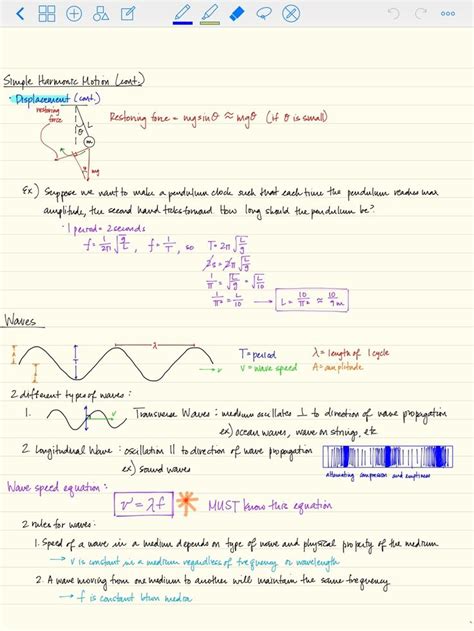 Simple Harmonic Motion (cont.)
· Displacement (cont.)
restoring force
θ L
m
mg
Restoring force = mg sin θ ≈ mg θ (if θ is small)
Ex) Suppose we want to make a pendulum clock such that each time the pendulum reaches max
amplitude, the second hand ticks forward. How long should the pendulum be?
· 1 period = 2 seconds
f = 1/2π √g/L , f = 1/T , so T = 2π √L/g
2s = 2π √L/g
1/π = √L/g = √L/10
1/π² = L/10 → L = 10/π² ≈ 10/9 m
Waves
A
A
T
λ
v
T = period λ = length of 1 cycle
v = wave speed A = amplitude
2 different types of waves:
1. v Transverse Waves : medium oscillates ⊥ to direction of wave propagation
ex) ocean waves, wave on strings, etc
2 Longitudinal Wave : oscillation || to direction of wave propagation
ex) sound waves
Alternating compression and emptiness
Wave speed equation :
v = λf MUST know this equation
2 rules for waves:
1. Speed of a wave in a medium depends on type of wave and physical property of the medium
→ v is constant in a medium regardless of frequency or wavelength
2. A wave moving from one medium to another will maintain the same frequency
→ f is constant btwn media